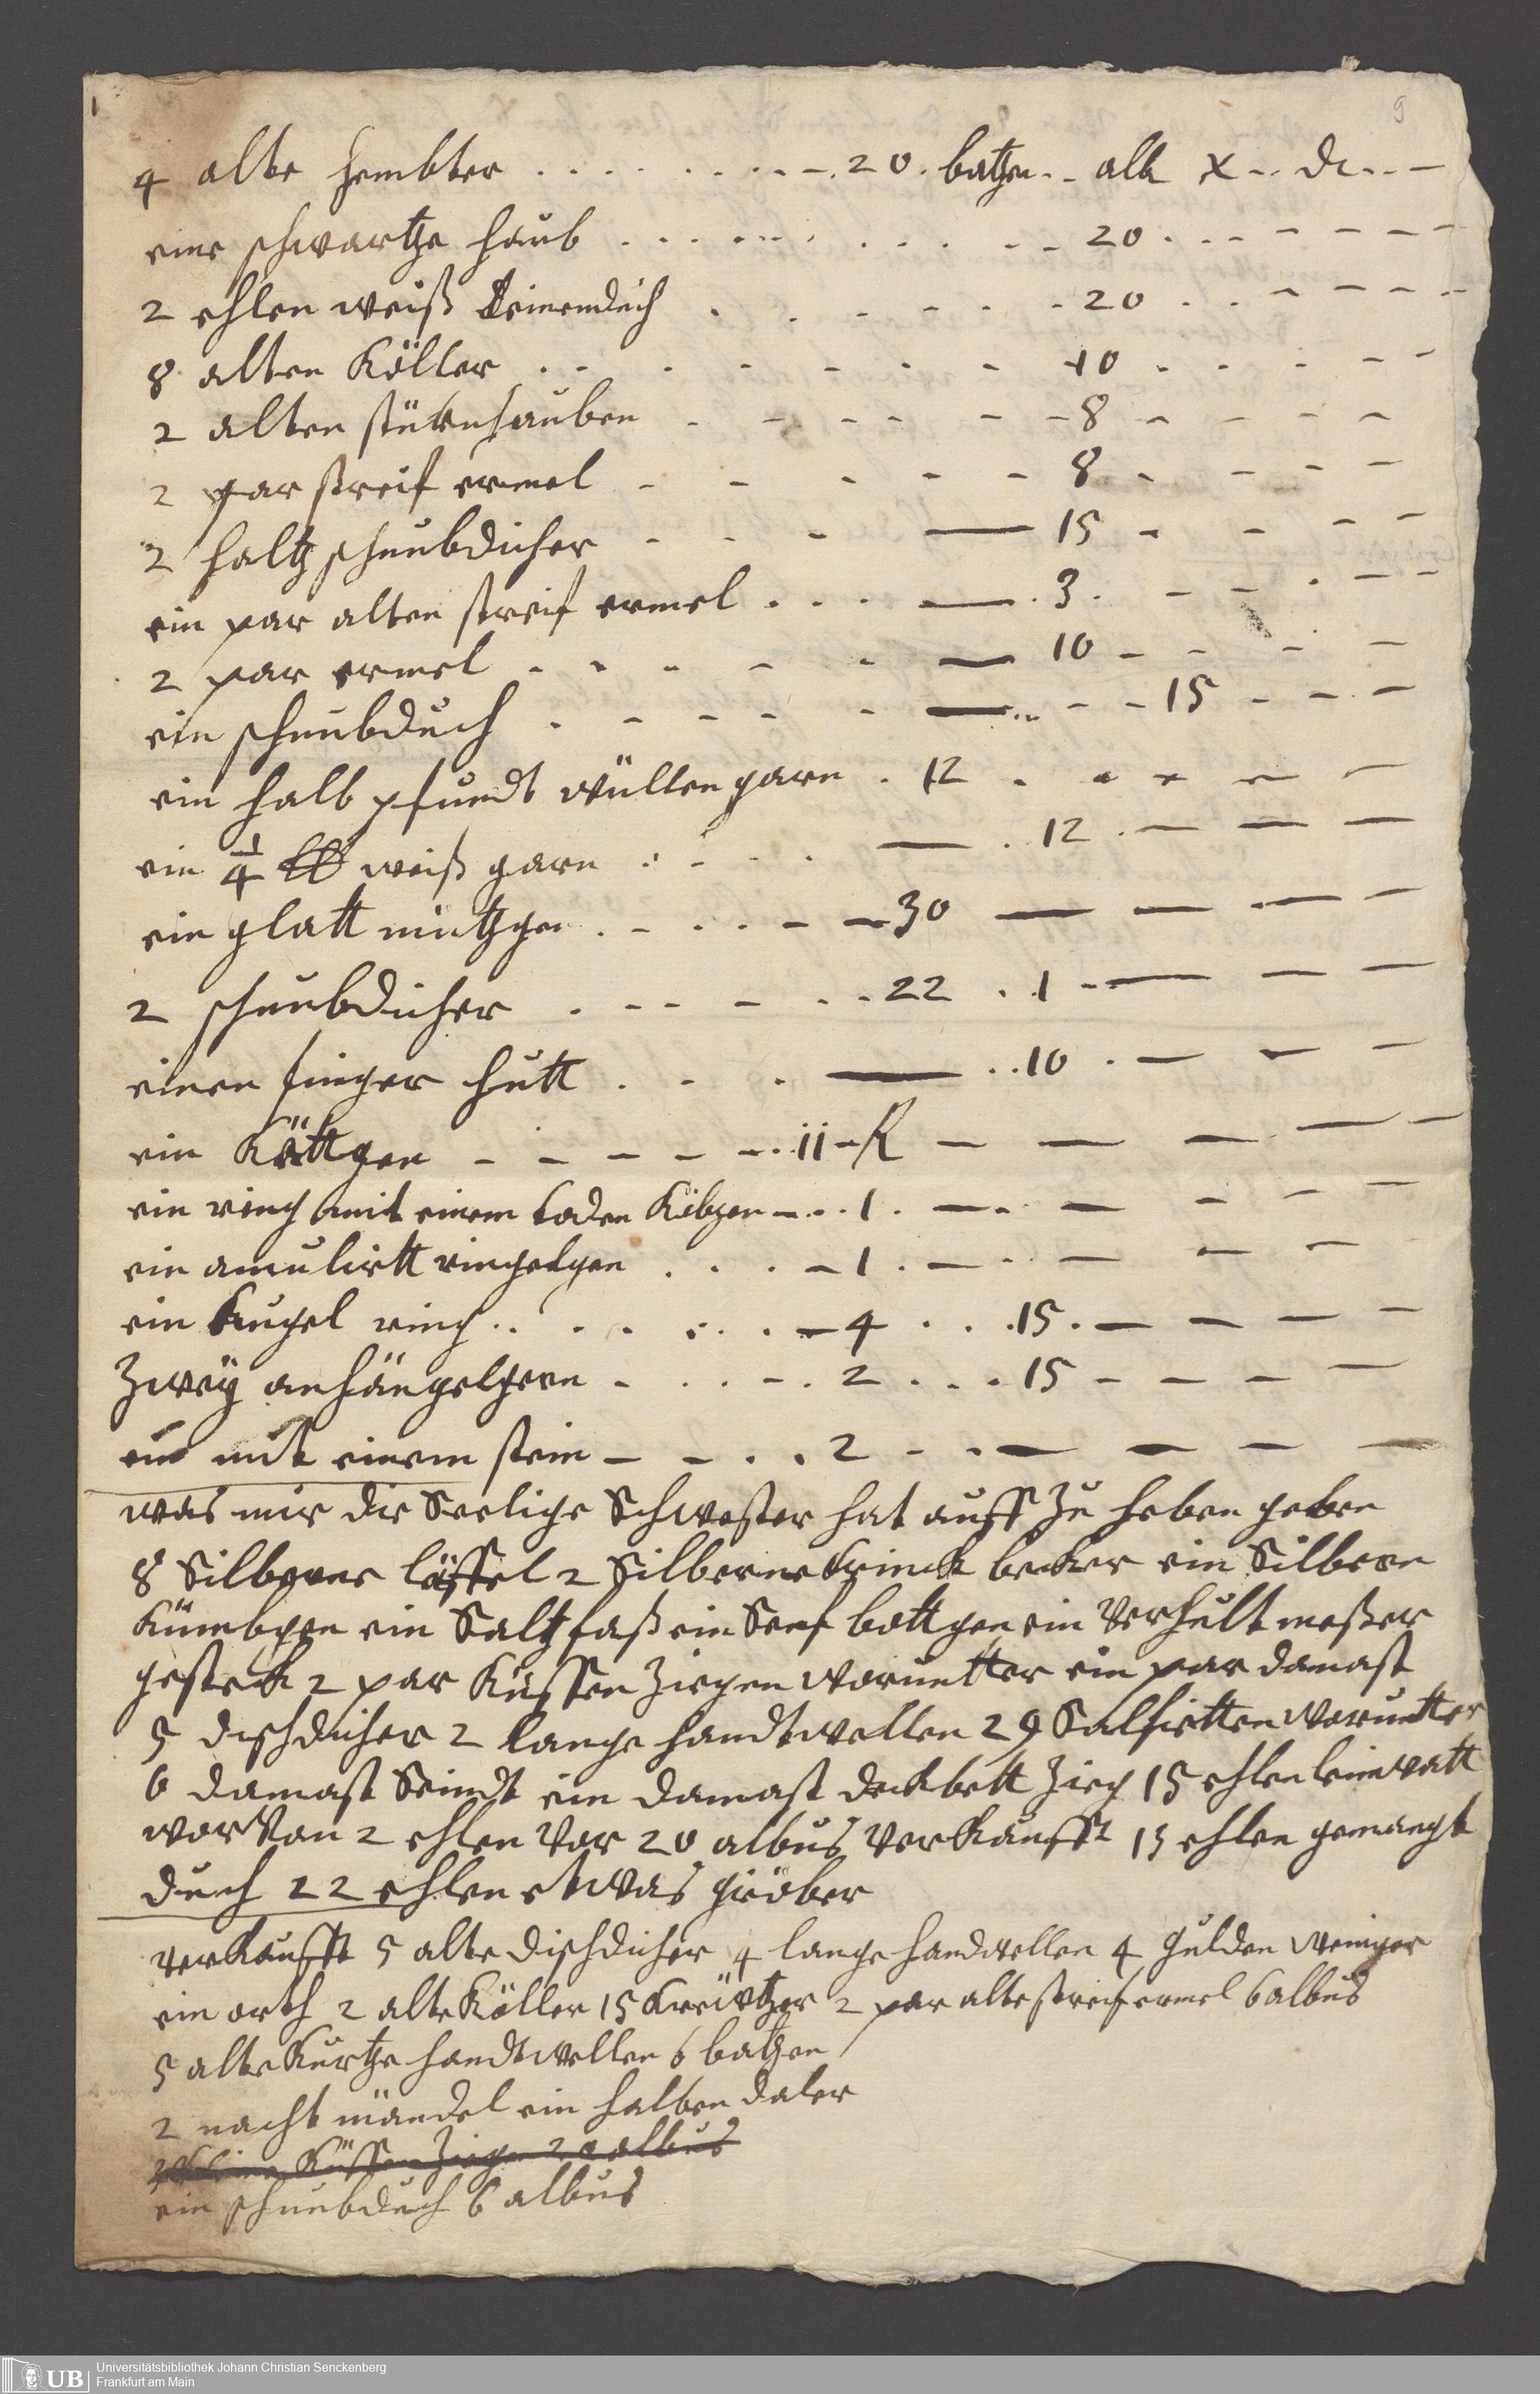 9
4 alte hembter . . . . . . . . . - . 20 . batzen . . alb x - . . d . . . -
eine schwartze haub . . . . . . . . . . - - 20 . . . - - - - -
2 ehlen weiß leinenduch . . - - - - 20 . . - - - -
8 alten Köller . . . - - - - 10 . . - - -
2 alten stürnhauben - - - - - - 8 - - - -
2 par streif ermel - - - - - 8 - - - -
2 haltz schnubdicher - - - — 15 - - - -
ein par alten streif ermel . . . — . 3 . - - . - -
2 par ermel - - - - - — 10 - - - -
ein schnubduch . - - - - — . . - - 15 - - -
ein halb pfundt wüllen garn . 12 . . x - -
ein 1/4 ℔ weiß garn . - - . — . 12 . - - -
ein glatt mützgen . - . . - - 30 — - - -
2 schnubdicher . - - - . - 22 . 1 - — - -
einen finger hutt . - . — . . 10 . - - -
einKöttgen - - - - - . . 11 - R - - - - -
ein ring mit einem toden Köbgen - . . 1 . - . - - - -
ein amulirtt ringelgen . . . - 1 . - . . - - -
ein Kugel ring . . . . . . . - 4 . . . 15 . - - - -
Zweÿ anhängelgern - . . - . 2 . . . 15 - - - -
ein mit einem stein - - . . 2 - . - - - -
was mir die Seelige Schwester hat auff zu heben geben
8 Silberne löffel 2 Silberne trinck becher ein Silbern
Kümbgen ein Saltz faß ein Senf bottgen ein Verhult meßer
gesteck 2 par Küssen Ziegen woruntter ein par damast
5 dischdicher 2 lange handtwellen 29 Salfietten woruntter
6 damast Seindt ein damast deckbett Zieg 15 ehlen leinwatt
wor Von 2 ehlen Vor 20 albus Verkaufft 15 ehlen gemangt
duch 22 ehlen etwas gröber
verkaufft 5 alte dischdicher 4 lange handwellen 4 gulden weniger
ein orth 2 alte Köller 15 Kreützer 2 par alte streif ermel 6 albus
5 alte Kurtze handtwellen 6 batzen
2 nacht mändel ein halben daler
2 kleine Küssen Ziegen 20 albus
ein schnubduch 6 albus
UB
Universitätsbibliothek Johann Christian Senckenberg
Frankfurt am Main